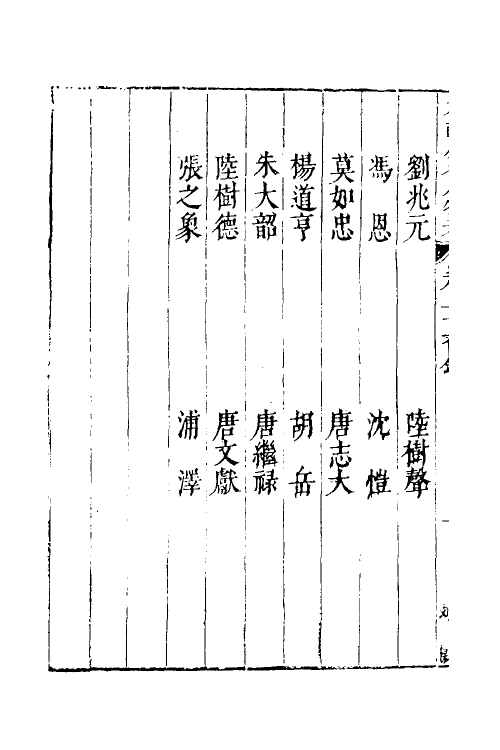 劉兆元　陸樹聲
馮　恩　沈　愷
莫如忠　唐志大
楊道亨　胡　岳
朱大韶　唐繼祿
陸樹德　唐文獻
張之象　浦　澤